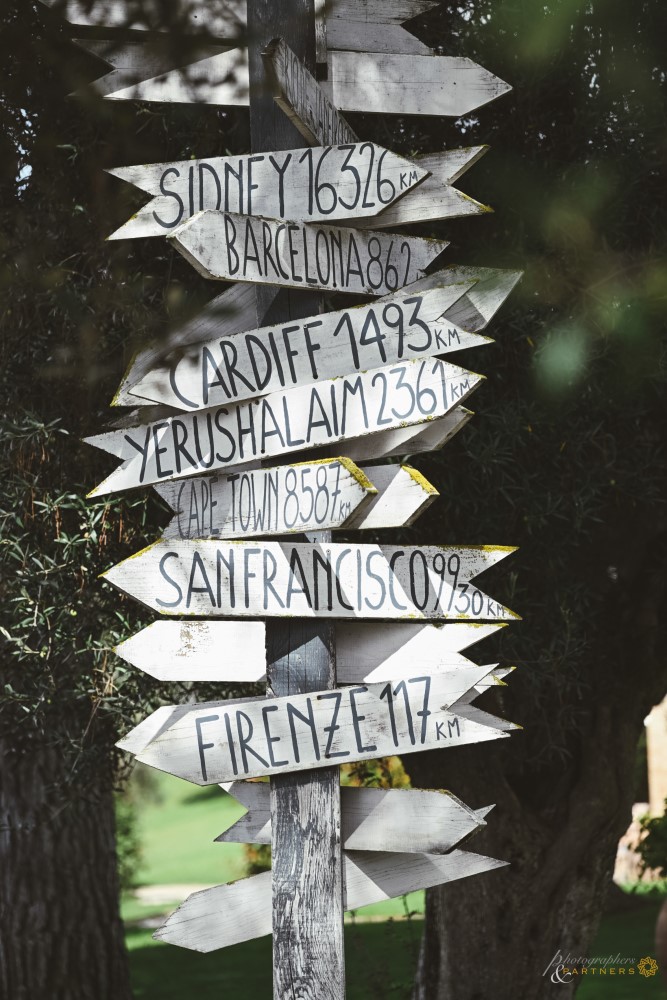 SIDNEY 16326 KM
BARCELONA 862
CARDIFF 1493 KM
YERUSHALAIM 2361 KM
CAPE TOWN 8587 KM
SAN FRANCISCO 9930 KM
FIRENZE 117 KM
photographers
& PARTNERS